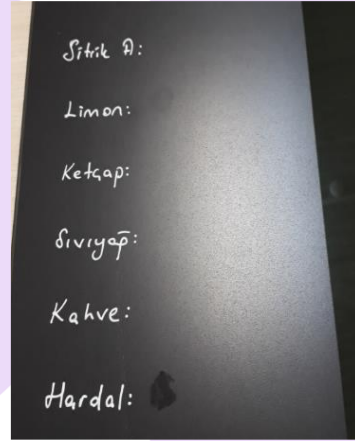 Sitrik A:
Limon:
Ketçap:
Sıvıyağ:
Kahve:
Hardal: